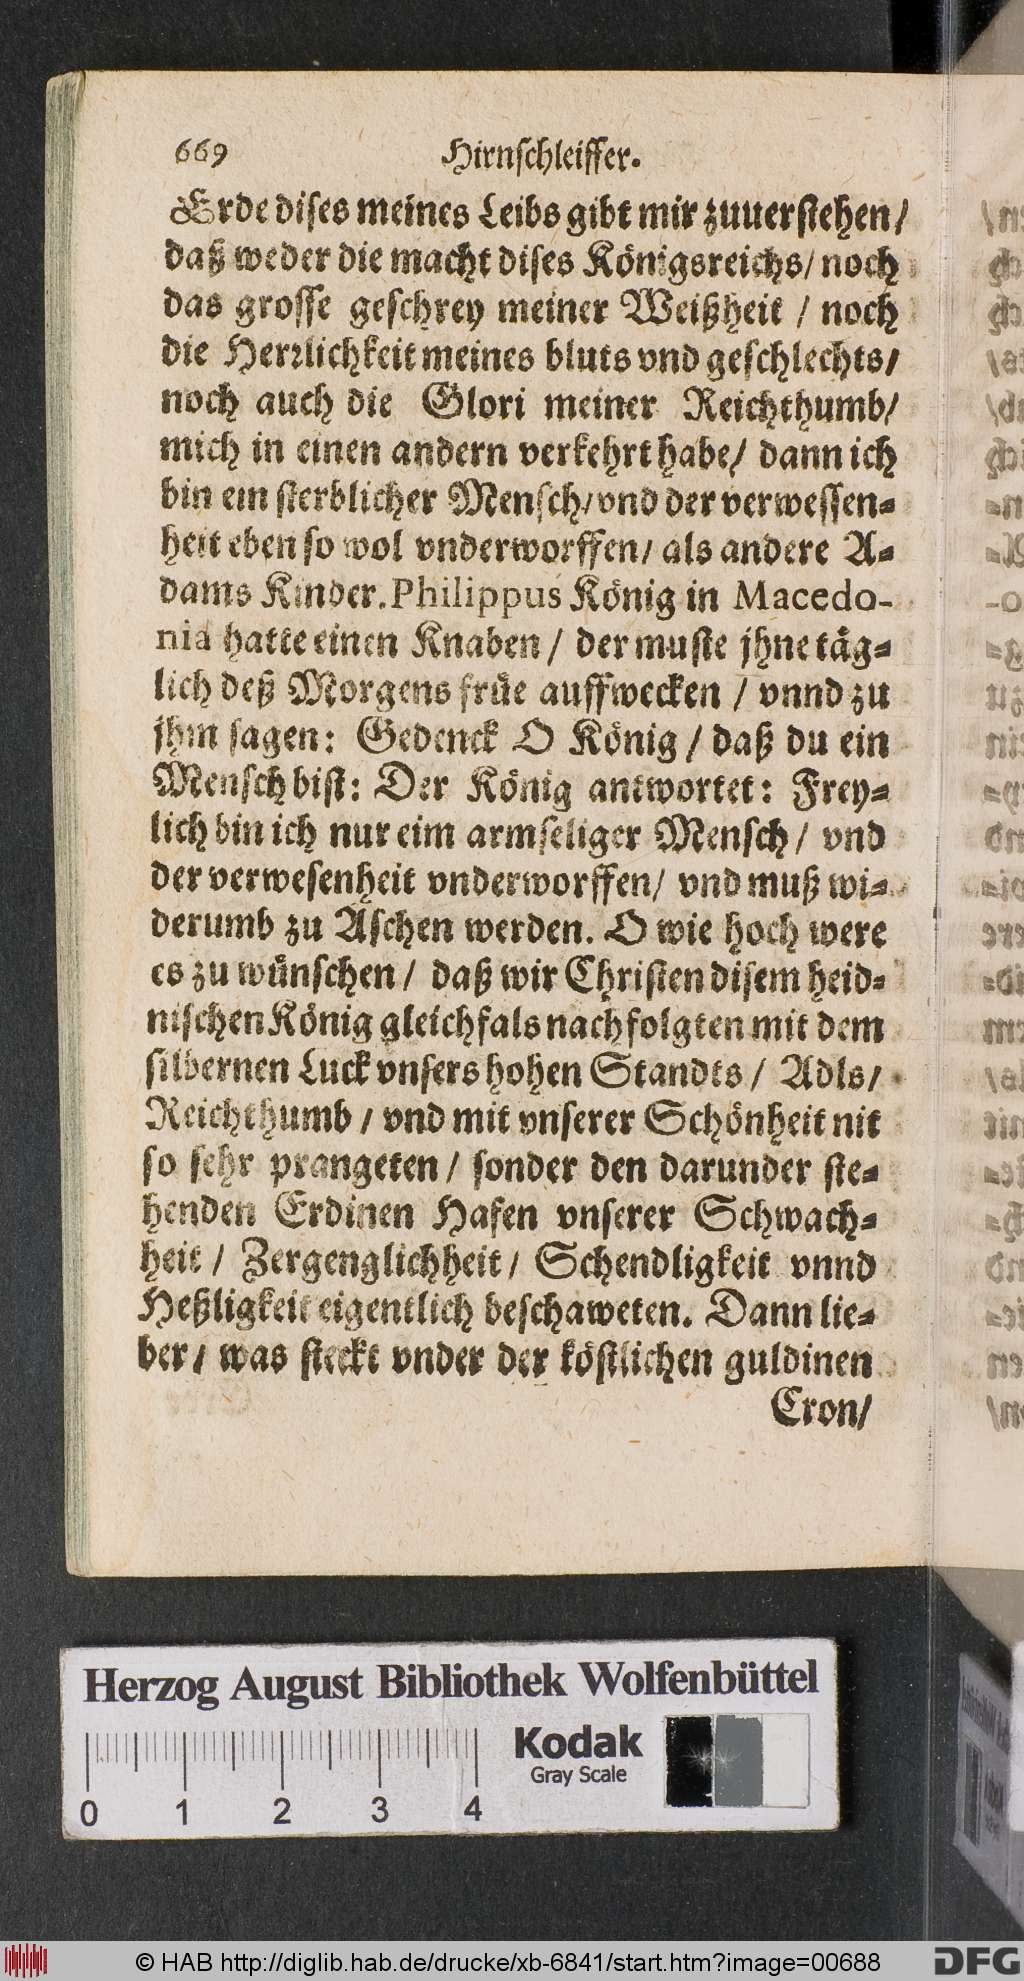 669 Hirnschleiffer.
Erde dises meines Leibs gibt mir zuuerstehen/
daß weder die macht dises Königsreichs/ noch
das grosse geschrey meiner Weißheit / noch
die Herrlichkeit meines bluts vnd geschlechts/
noch auch die Glori meiner Reichthumb/
mich in einen andern verkehrt habe/ dann ich
bin ein sterblicher Mensch/ vnd der verwessen-
heit eben so wol vnderworffen/ als andere A-
dams Kinder. Philippus König in Macedo-
nia hatte einen Knaben / der muste jhne täg-
lich deß Morgens früe auffwecken / vnnd zu
jhm sagen: Gedenck O König / daß du ein
Mensch bist: Der König antwortet: Frey-
lich bin ich nur eim armseliger Mensch / vnd
der verwesenheit vnderworffen/ vnd muß wi-
derumb zu Aschen werden. O wie hoch were
es zu wünschen / daß wir Christen disem heid-
nischen König gleichfals nachfolgten mit dem
silbernen Luck vnsers hohen Standts / Adls/
Reichthumb / vnd mit vnserer Schönheit nit
so sehr prangeten / sonder den darunder ste-
henden Erdinen Hafen vnserer Schwach-
heit / Zergenglichheit / Schendligkeit vnnd
Heßligkeit eigentlich beschaweten. Dann lie-
ber / was steckt vnder der köstlichen guldinen
Cron/
Herzog August Bibliothek Wolfenbüttel
Kodak
Gray Scale
0 1 2 3 4
© HAB http://diglib.hab.de/drucke/xb-6841/start.htm?image=00688
DFG